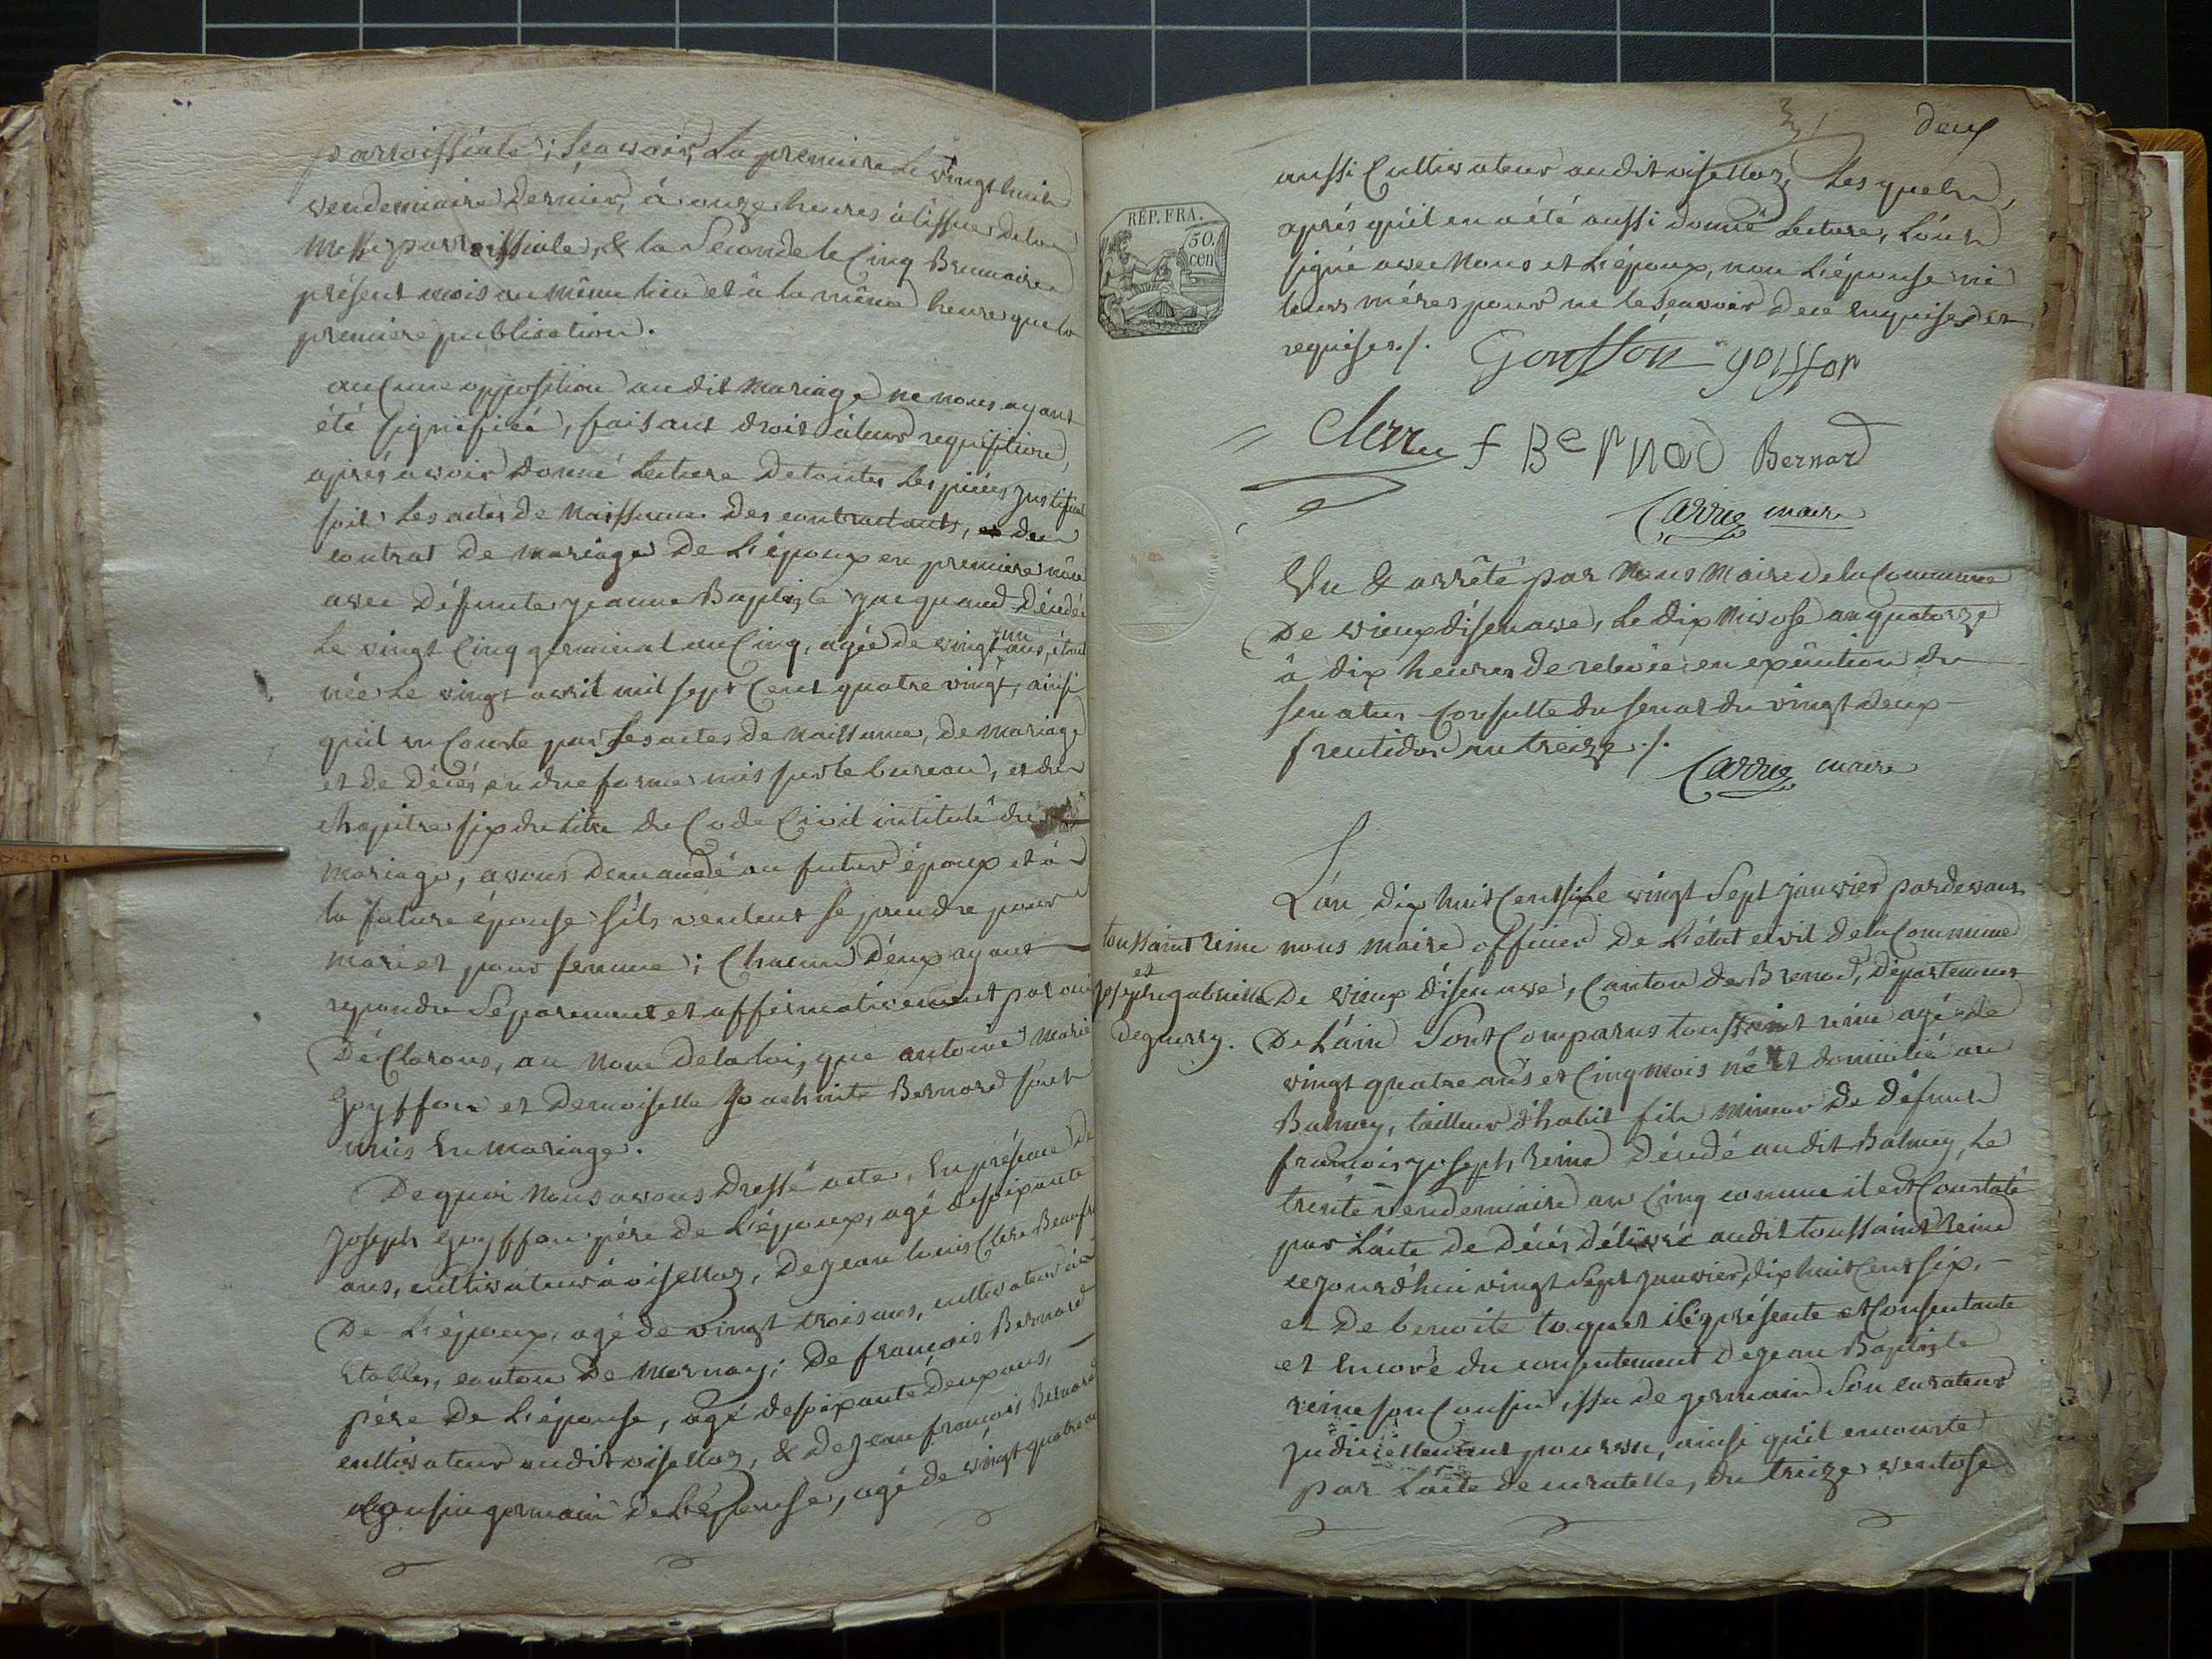 parroissiale; sçavoir, La premiere Le vingt huit
vendemiaire dernier, à onze heures à lissue de la
Messe parroissiale, & la Seconde le Cinq Brumaire
présent mois au même lieu et à la même heure que la
premiere publication.
aucune opposition au dit Mariage ne nous ayant
été signifiée, faisant droit à leur requisition,
après avoir donné Lecture de toutes Les pièces
soit Les actes de Naissance des contractants, du
contrat de mariage de L'époux en premiere
avec défunte jeanne Baptiste décédée
Le vingt Cinq germinal an Cinq, agée de vingt un ans, étant
née Le vingt avril mil sept Cent quatre vingt, ainsi
quil en Conste par Les actes de Naissance, de Mariage
et de décès en due forme mis sur le bureau, et du
chapitre six du titre du Code Civil intitulé du
Mariage, avons demandé au futur époux et à
la future épouse s'ils veulent se prendre pour
mari et pour femme; Chacun d'eux ayant
repondu Séparement et affirmativement par oui
Déclarons, au Nom de la loi, que antoine Marie
goyffon et Demoiselle Joachinte Bernard sont
unis En mariage.
De quoi Nous avons dressé acte, En présence de
Joseph goyffon père de L'époux, agé de soixante
ans, cultivateur à oisellaz, de jean louis Clerc
De L'époux, agé de vingt trois ans, cultivateur à
Etables, canton de Mornay; De françois Bernard
père de L'épouse, agé de soixante deux ans,
cultivateur audit oisellaz, & de jean françois Bernard
Cousin germain de L'épouse, agé de vingt quatre ans
deux
RÉP. FRA.
50.
cen
aussi Cultivateur audit oisellaz, Les quels,
après qu'il en a été aussi donné Lecture, L'ont
signé avec Nous et L'époux, non L'épouse ni
leurs méres pour ne le sçavoir de ce Enquises et
requises./.
Gouffon goiffon
Clerc f BerNaD Bernard
Carrug maire
Vu & arrêté par Nous Maire de la Commune
De vieux d'isenave, Le dix Nivose an quatorze
à dix heures de relevée en exécution du
senatus Consulte du senat du vingt deux
fructidor an treize./.
Carrug maire
toussaint reine
et
josephe gabrielle
deguerry.
L'an dix huit Cent six Le vingt Sept janvier pardevant
nous Maire officier de L'état civil de la Commune
De vieux d'isenave, Canton de Brenod, département
De L'ain Sont Comparus toussaint reine agé de
vingt quatre ans et Cinq mois né et domicilié au
Balmey, tailleur d'habit fils mineur de défunt
francois joseph Reine décédé au dit Balmey, Le
trente vendemiaire an Cinq comme il est Constaté
par L'acte de décès délivré audit toussaint Reine
cejourd'hui vingt Sept janvier dix huit Cent six,
et De benoite toquet ici présente et Consentante
et Encore du consentement de jean Baptiste
reine son Cousin issu de germain Son curateur
judiciellement pourvu, ainsi qu'il en conste
par L'acte de curatelle, du treize ventose